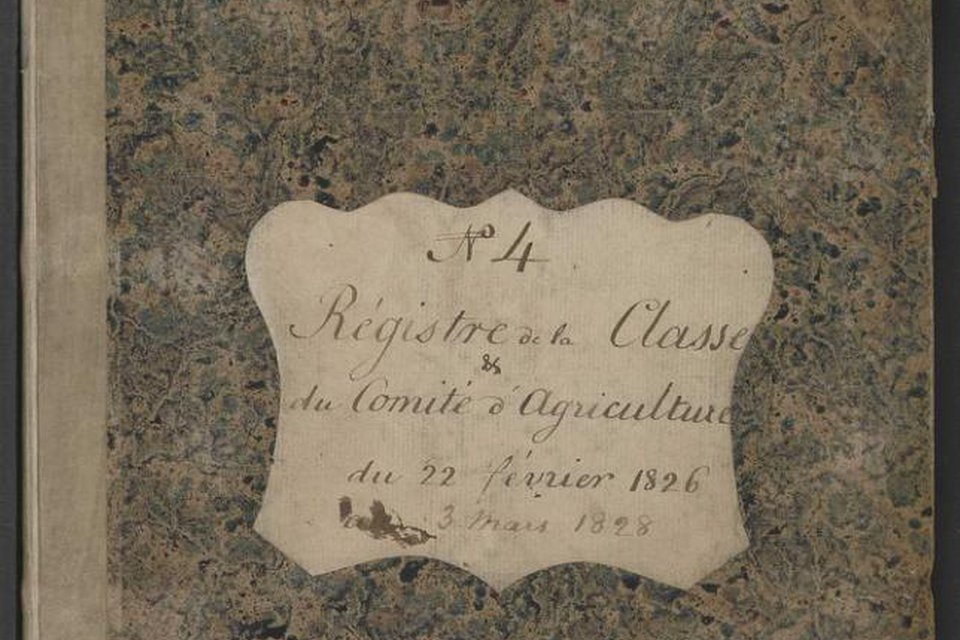 Nº 4
Régistre de la Classe
&
du Comité d'Agriculture
du 22 février 1826
3 mars 1828